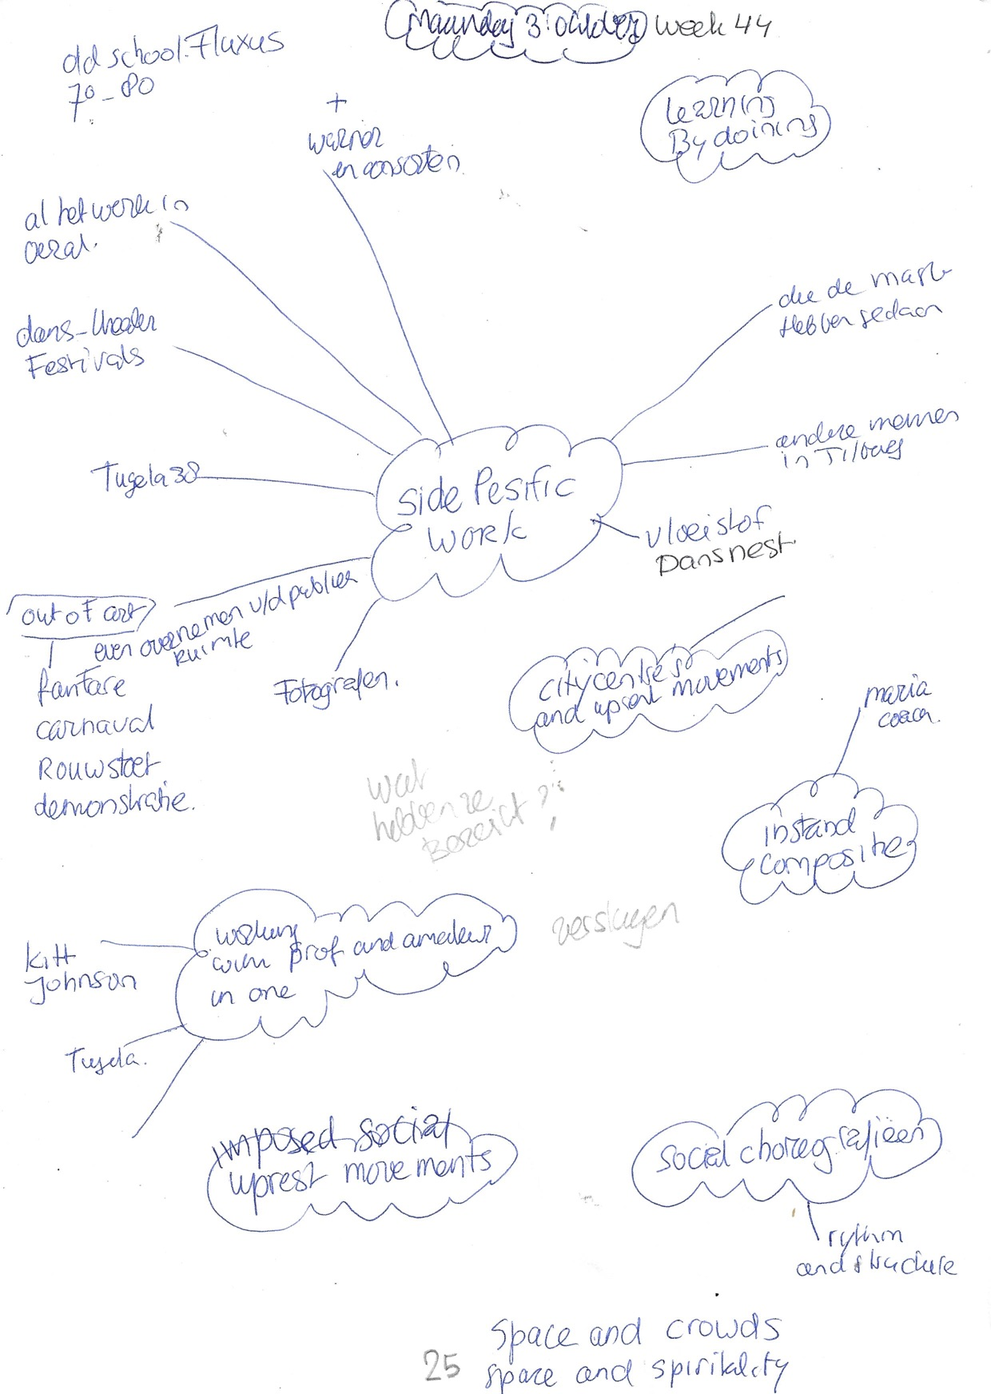 Maunday 3 october week 44
old school Fluxus
70 - 80
+
warner
en consorten
Learning
By doining
al het werk in
oeral.
die de mast
Hebben gedaan
dans-theater
Festivals
andere mensen
in Tilburg
Tugela 38
side Pesific
work
vloeistof
Dansnest.
out of cart
even overnemen v/d publieke
Ruimte
Fotografen.
fanfare
carnaval
Rouwstoet
demonstratie.
citycentres
and uprest movements
maria
coach.
wat
hebben ze
Bereict ?
!
instand
composite
working
with prof and amedeur
in one
verslagen
kitt
Johnson
Tugela.
imposed social
uprest movements
social choregrafieen
rythm
and structure
Space and crowds
25 space and spiritality